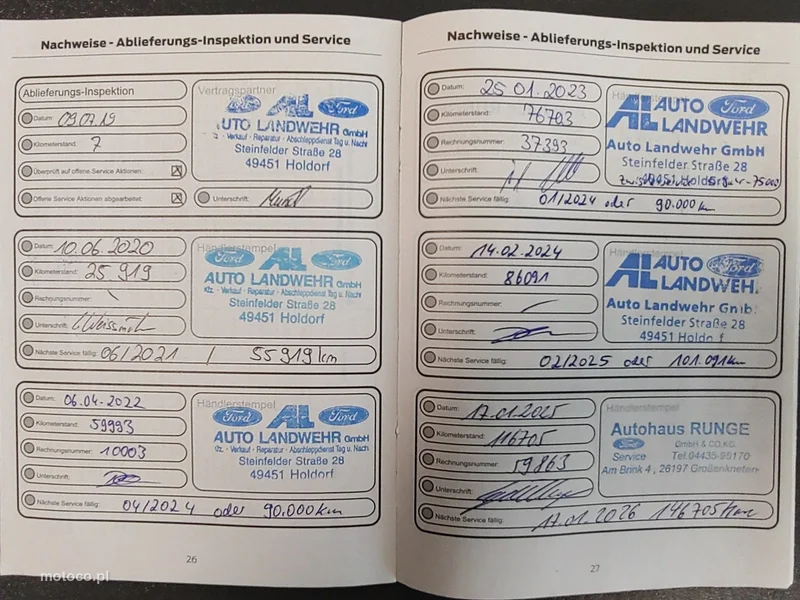 Nachweise - Ablieferungs-Inspektion und Service
Ablieferungs-Inspektion
Datum: 09.07.19
Kilometerstand: 7
Überprüft auf offene Service Aktionen:
Offene Service Aktionen abgearbeitet:
Vertragspartner
Ford
AL
Ford
AUTO LANDWEHR GmbH
Kfz. - Verkauf - Reparatur - Abschleppdienst Tag u. Nacht
Steinfelder Straße 28
49451 Holdorf
Unterschrift:
Datum: 10.06.2020
Kilometerstand: 25 919
Rechnungsnummer:
Unterschrift:
Nächste Service fällig: 06/2021 / 55919 km
Händlerstempel
Ford
AL
Ford
AUTO LANDWEHR GmbH
Kfz. - Verkauf - Reparatur - Abschleppdienst Tag u. Nacht
Steinfelder Straße 28
49451 Holdorf
Datum: 06.04.2022
Kilometerstand: 59993
Rechnungsnummer: 10003
Unterschrift:
Nächste Service fällig: 04/2024 oder 90.000 km
Händlerstempel
Ford
AL
Ford
AUTO LANDWEHR GmbH
Kfz. - Verkauf - Reparatur - Abschleppdienst Tag u. Nacht
Steinfelder Straße 28
49451 Holdorf
26
Nachweise - Ablieferungs-Inspektion und Service
Datum: 25 01.2023
Kilometerstand: 76703
Rechnungsnummer: 37393
Unterschrift:
Nächste Service fällig: 01/2024 oder 90.000 km
AL AUTO Ford
LANDWEHR
Auto Landwehr GmbH
Steinfelder Straße 28
49451 Holdorf
Datum: 14.02.2024
Kilometerstand: 86091
Rechnungsnummer:
Unterschrift:
Nächste Service fällig: 02/2025 oder 101.091km
AL AUTO Ford
LANDWEH
Auto Landwehr GmbH
Steinfelder Straße 28
49451 Holdorf
Datum: 17.01.2025
Kilometerstand: 116705
Rechnungsnummer: 59863
Unterschrift:
Nächste Service fällig: 17.01.2026 146705 km
Händlerstempel
Autohaus RUNGE
Ford GmbH & CO.KG.
Service Tel.04435-95170
Am Brink 4, 26197 Großenkneten
27
motoco.pl